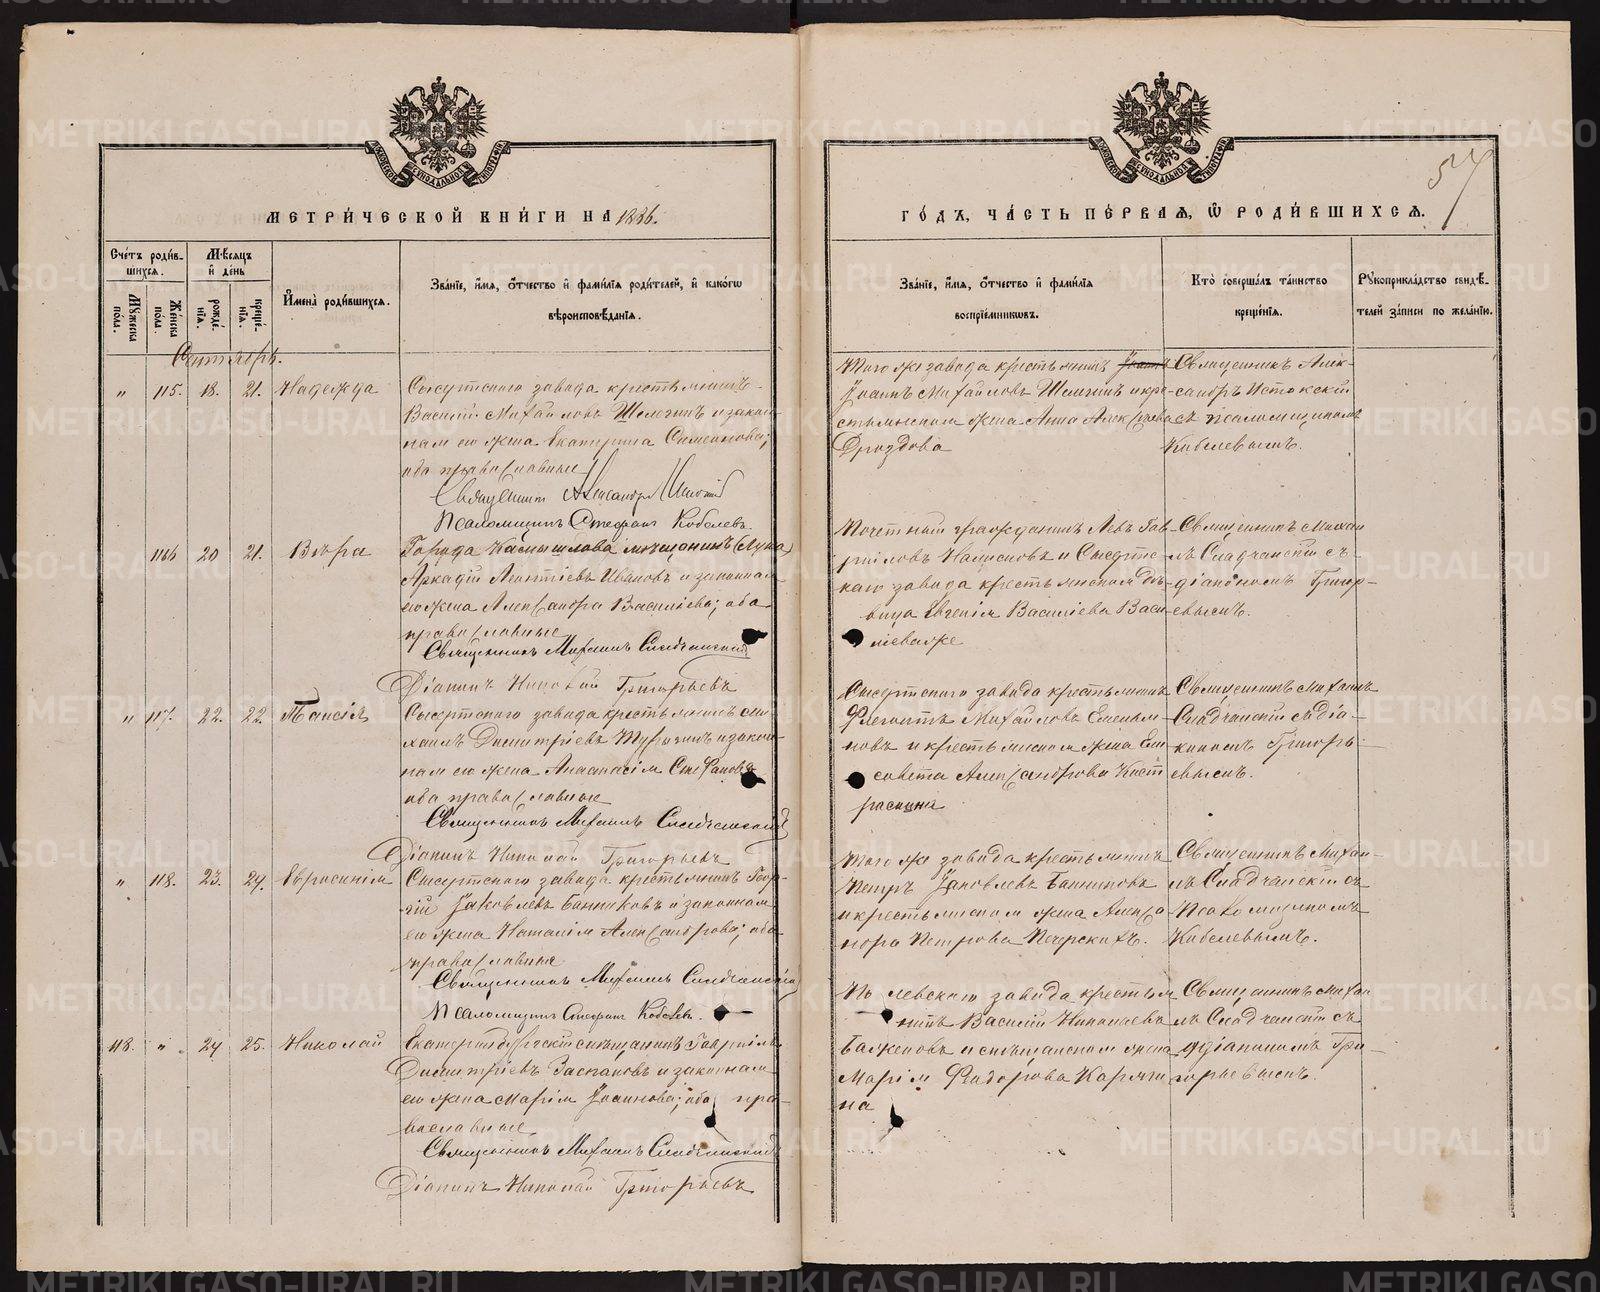 МЕТРИ́ЧЕСКОЙ КНИ́ГИ НА 1886.
Счетъ роди́вшихся.
Мѣсяцъ и день
Мужеска пола.
Женска пола.
рожде́нія.
креще́нія.
Имена̀ роди́вшихся.
Зва́ніе, имя, отчество и фами́лія роди́телей, и како́гѡ
вѣроисповѣ́данія.
Сентябрь.
„ 115. 18. 21. Надежда
Сысертскаго завода крестьянинъ
Василій Михайловъ Шелегинъ и закон-
ная его жена Екатерина Симеонова;
оба православные
Священникъ Александръ Истокскій
Псаломщикъ Стефанъ Кобелевъ.
116 20 21. Вѣра
Города Камышлова мѣщанинъ (Лука)
Аркадій Леонтіевъ Ивановъ и законная
его жена Александра Василіева; оба
православные
Священникъ Михаилъ Сладчанскій
Діаконъ Николай Григорьевъ
„ 117. 22. 22. Таисія
Сысертскаго завода крестьянинъ Ми-
хаилъ Димитріевъ и закон-
ная его жена Анастасія Стефанова
оба православные
Священникъ Михаилъ Сладчанскій
Діаконъ Николай Григорьевъ
„ 118. 23. 24. Евфросинія
Сысертскаго завода крестьянинъ Геор-
гій Іаковлевъ Банниковъ и законная
его жена Наталія Александрова; оба
православные
Священникъ Михаилъ Сладчанскій
Псаломщикъ Стефанъ Кобелевъ.
118. „ 24 25. Николай
Екатеринбургскій мѣщанинъ Гавріилъ
Димитріевъ и законная
его жена Марія Іоаннова; оба пра-
вославные
Священникъ Михаилъ Сладчанскій
Діаконъ Николай Григорьевъ
57
ГО́ДЪ, ЧА́СТЬ ПЕ́РВАЯ, Ѡ РОДИ́ВШИХСЯ.
Зва́ніе, имя, отчество и фами́лія
воспріе́мниковъ.
Кто̀ соверша́лъ та́инство
креще́нія.
Рукоприкла́дство свидѣ́-
телей за́писи по жела́нію.
Того же завода крестьянинъ
Іоаннъ Михайловъ Шелегинъ и кре-
стьянская жена Анна Александрова
Дроздова
Священникъ Алек-
сандръ Истокскій
съ псаломщикомъ
Кобелевымъ.
Почетный гражданинъ Левъ Гав-
ріиловъ и Сысертс-
каго завода крестьянская дѣ-
вица Евгенія Василіева Васи-
Священникъ Михаи-
лъ Сладчанскій съ
діакономъ Григорь-
евымъ.
Сысертскаго завода крестьянинъ
Флегонтъ Михайловъ
и крестьянская жена Ели-
савета Александрова
Священникъ Михаилъ
Сладчанскій съ діа-
кономъ Григорь-
евымъ.
Того же завода крестьянинъ
Петръ Іаковлевъ Банниковъ
и крестьянская жена Алекса-
ндра Петрова Печерскихъ.
Священникъ Михаи-
лъ Сладчанскій съ
Псаломщикомъ
Кобелевымъ.
Полевскаго завода крестья-
нинъ Василій Николаевъ
Баженовъ и мѣщанская жена
Марія Феодорова Карпачи-
на
Священникъ Михаи-
лъ Сладчанскій съ
діакономъ Гри-
горьевымъ.
METRIKI.GASO-URAL.RU